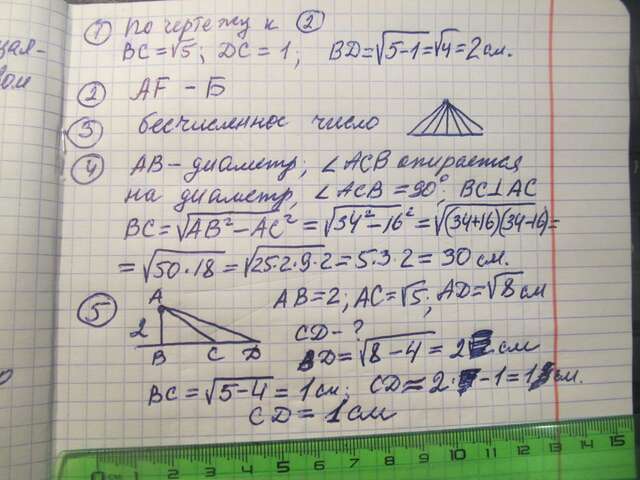 щая-
вом
① По чертежу к ②
BC=√5; DC=1; BD=√5-1=√4=2см.
② AF - Б
③ бесчисленное число
④ AB-диаметр; ∠ACB опирается
на диаметр, ∠ACB=90°; BC⊥AC
BC=√AB²-AC²=√34²-16²=√(34+16)(34-16)=
=√50·18=√25·2·9·2=5·3·2=30 см.
⑤ A AB=2; AC=√5; AD=√8 см
2 CD-?
B C D BD=√8-4=2 см
BC=√5-4=1см; CD=2-1=1см.
CD=1см
0 1 2 3 4 5 6 7 8 9 10 11 12 13 14 15